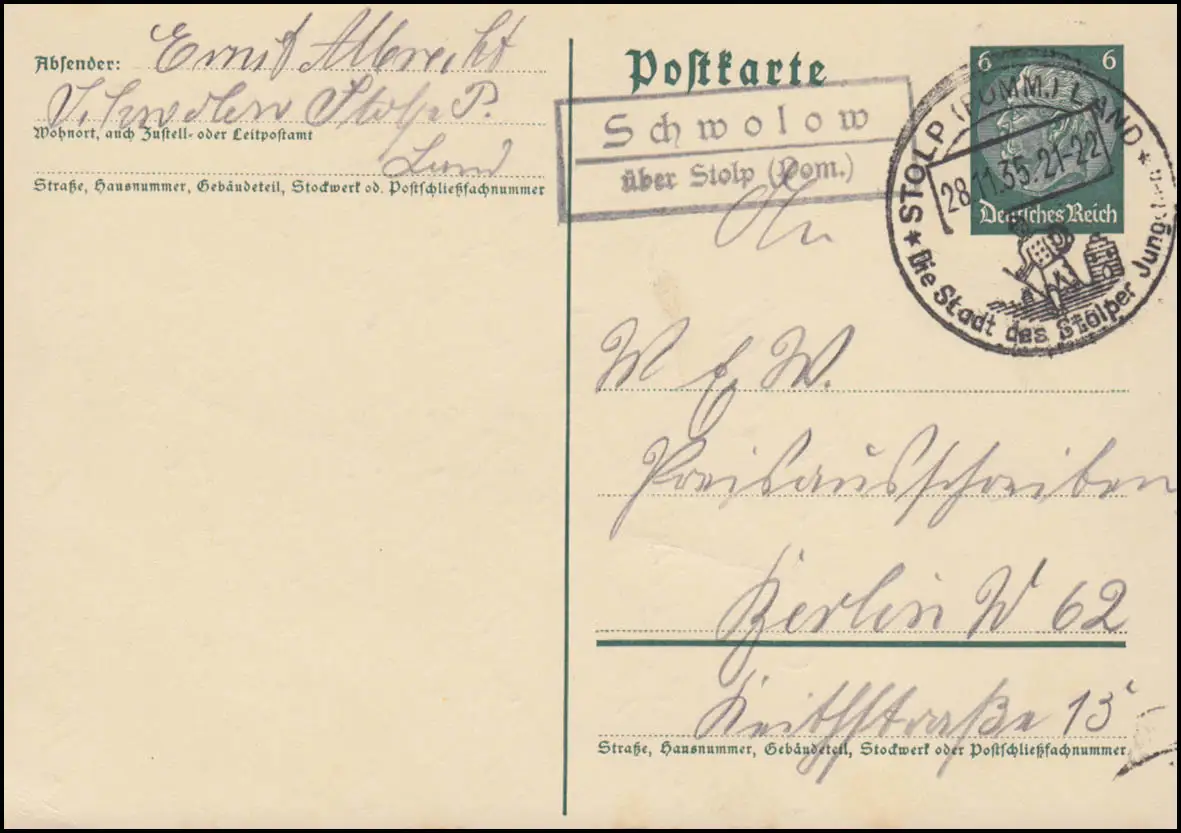 Absender: Ernst Albrecht
Schwolow Stolp P.
Wohnort, auch Zustell- oder Leitpostamt
Land
Straße, Hausnummer, Gebäudeteil, Stockwerk od. Postschließfachnummer
Postkarte
Schwolow
über Stolp (Pom.)
6 6
Deutsches Reich
STOLP (POMM.) LAND
28.11.35.21-22
Die Stadt des Stolper Jung
An
W. E. W.
Preisausschreiben
Berlin W 62
Keithstraße 15
Straße, Hausnummer, Gebäudeteil, Stockwerk oder Postschließfachnummer